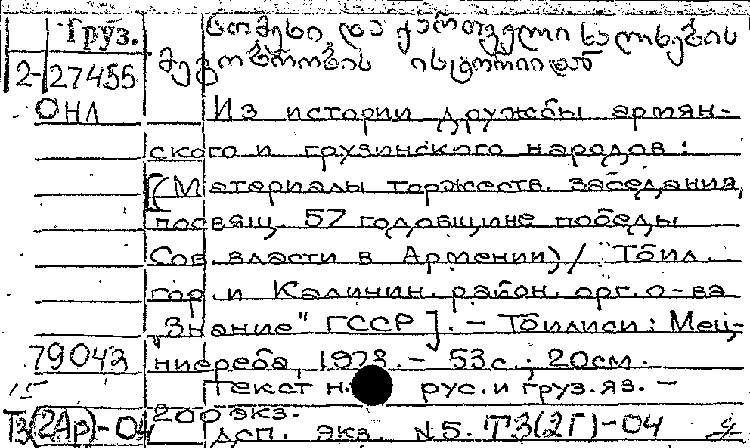 Груз.
სომეხი და ქართველი ხალხების
2-27455 მეგობრობის ისტორიიდან
ОНЛ Из истории дружбы армян-
ского и грузинского народов :
[(Материалы торжеств. заседания,
посвящ. 57 годовщине победы
Сов. власти в Армении) / Тбил.
гор. и Калинин. район. орг. о-ва
"Знание" ГССР]. – Тбилиси : Мец-
79043 ниереба, 1978. – 53с ; 20см.
15 Текст н. рус. и груз. яз. –
200 экз.
ТЗ(2Ар)-04 Дсп. экз. №5. ТЗ(2Г)-04